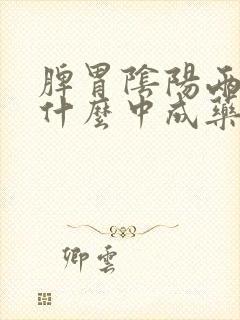 脾胃陰陽兩
什麼中成藥
卿雲